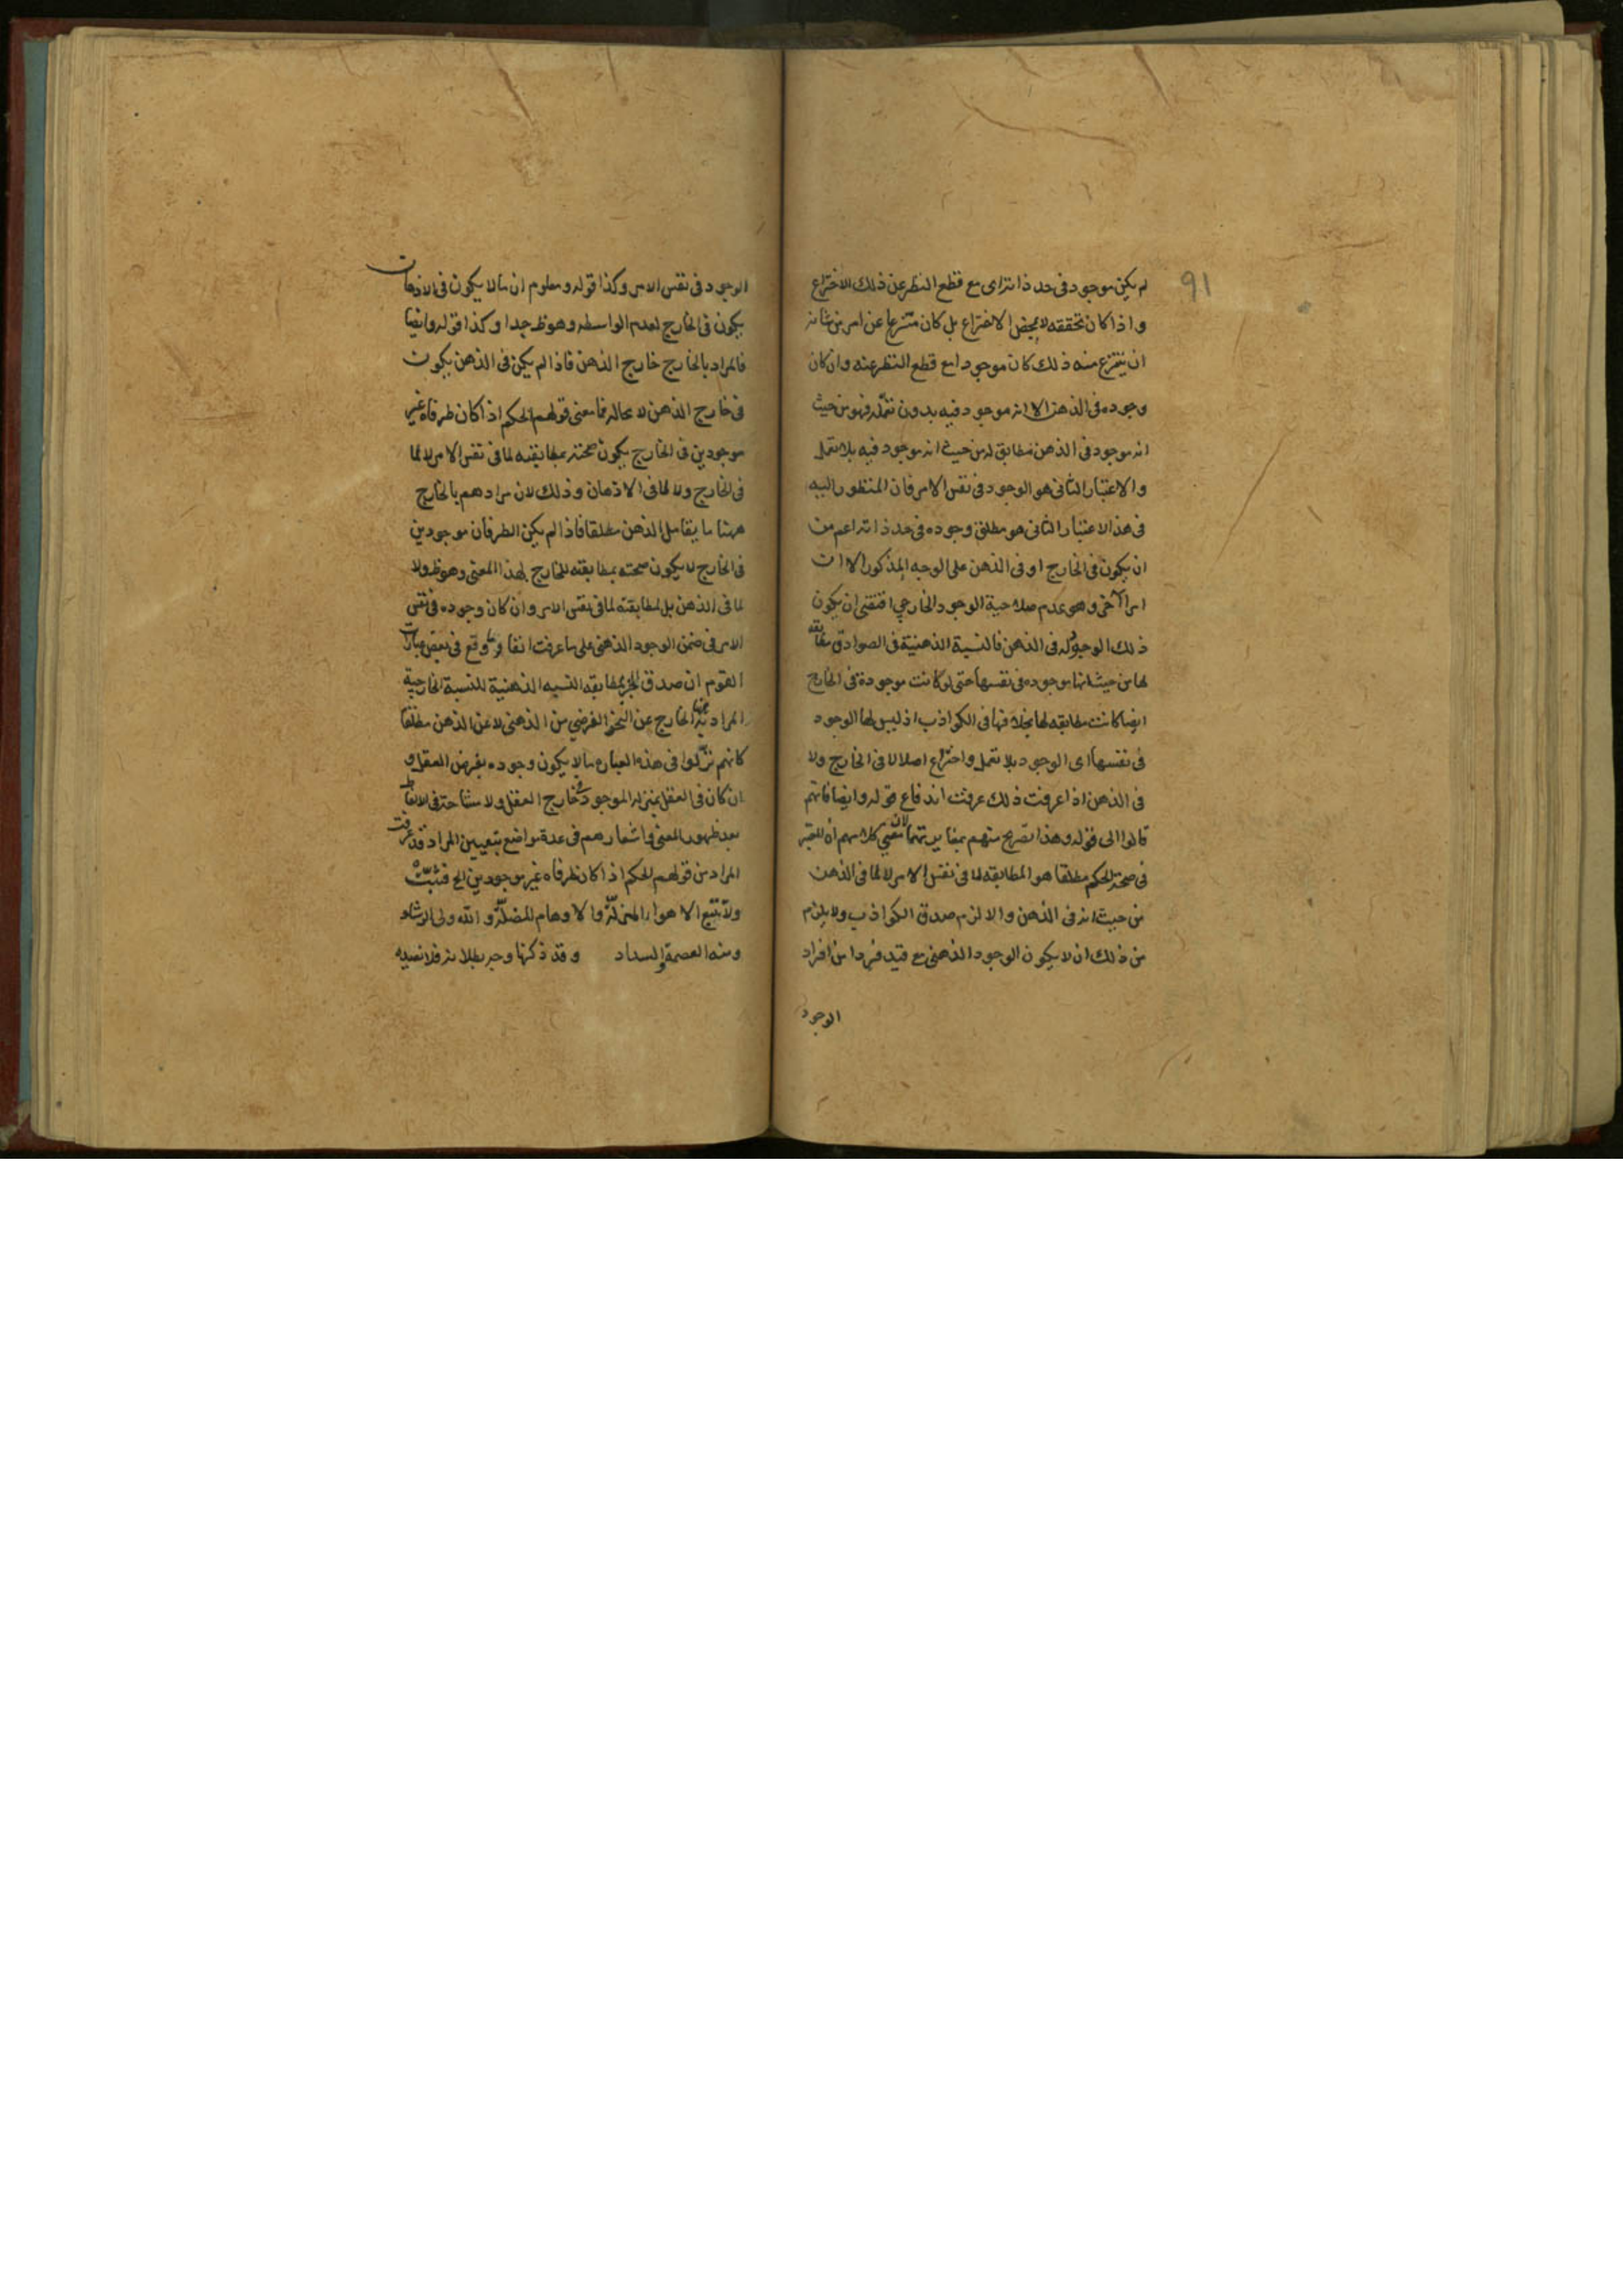 91
لم يكن موجود فى حد ذاته اى مع قطع النظر عن ذلك الاختراع
واذا كان تحققه لا بمحض الاختراع بل كان منتزعا عن امر من شانه
ان ينتزع منه ذلك كان موجودا مع قطع النظر عنه وان كان
وجوده فى الذهن الا انه موجود فيه بدون تعمله فهو من حيث
انه موجود فى الذهن مطابق له من حيث انه موجود فيه بلا تعمل
والاعتبار الثانى هو الوجود فى نفس الامر فان المنظور اليه
فى هذا الاعتبار الثانى هو مطلق وجوده فى حد ذاته اعم من
ان يكون فى الخارج او فى الذهن على الوجه المذكور الا ان
امرا آخر وهو عدم صلاحية الوجود الخارجي اقتضى ان يكون
ذلك الوجود له فى الذهن فالنسبة الذهنية فى الصوادق مطابقة
لها من حيث انها موجوده فى نفسها حتى لو كانت موجودة فى الخارج
ايضا كانت مطابقه لها بخلافها فى الكواذب اذ ليس لها الوجود
فى نفسها اى الوجود بلا تعمل واختراع اصلا لا فى الخارج ولا
فى الذهن اذا عرفت ذلك عرفت اندفاع قوله وايضا فانهم
قالوا الى قوله وهذا تصريح منهم بمغايرتهما لان معنى كلامهم ان المعتبر
فى صحة الحكم مطلقا هو المطابقه لما فى نفس الامر لا لما فى الذهن
من حيث انه فى الذهن والا لزم صدق الكواذب ولا يلزم
من ذلك ان لا يكون الوجود الذهنى مع قيد فردا من افراد
الوجود
الوجود فى نفس الامر وكذا قوله ومعلوم ان ما لا يكون فى الاذهان
يكون فى الخارج لعدم الواسطه وهو ظ جدا وكذا قوله وايضا
فالمراد بالخارج خارج الذهن فاذا لم يكن فى الذهن يكون
فى خارج الذهن لا محاله فما معنى قولهم الحكم اذا كان طرفاه غير
موجودين فى الخارج يكون صحته بمطابقته لما فى نفس الامر لا لما
فى الخارج ولا لما فى الاذهان وذلك لان مرادهم بالخارج
ههنا ما يقابل الذهن مطلقا فاذا لم يكن الطرفان موجودين
فى الخارج لا يكون صحته بمطابقته للخارج بهذا المعنى وهو ظ ولا
لما فى الذهن بل لمطابقته لما فى نفس الامر وان كان وجوده فى نفس
الامر فى ضمن الوجود الذهنى على ما عرفت انفا وما وقع فى بعض عبارات
القوم ان صدق الخبر بمطابقه النسبه الذهنية للنسبة الخارجية
المراد بها الخارج عن النحو الفرضي من الذهنى لا عن الذهن مطلقا
كانهم نزّلوا فى هذه العباره ما لا يكون وجوده بفرض العقل و
ان كان فى العقل بمنزله الموجود فى خارج العقل ولا مشاحة فى الالفاظ
بعد ظهور المعنى واشعارهم فى عدة مواضع بتعيين المراد وقد عرفت
المراد من قولهم الحكم اذا كان طرفاه غير موجودين الخ فتثبّت
ولا تتبع الاهواء المزلّة والاوهام المضلّة والله ولى الرشاد
ومنه العصمة والسداد وقد ذكرنا وجه بطلانه فلا نعيده